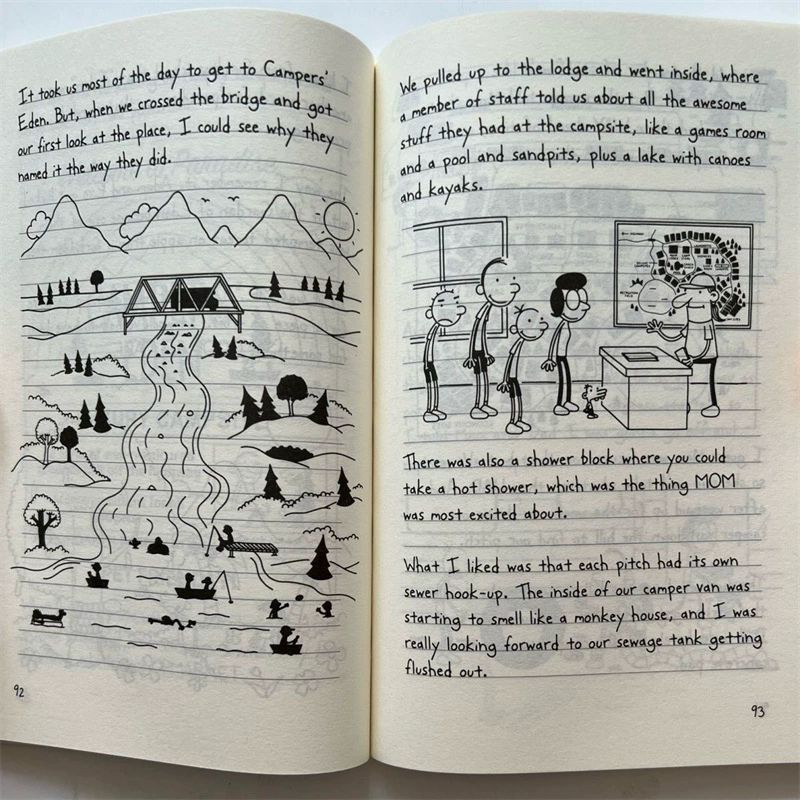 It took us most of the day to get to Campers'
Eden. But, when we crossed the bridge and got
our first look at the place, I could see why they
named it the way they did.
92
We pulled up to the lodge and went inside, where
a member of staff told us about all the awesome
stuff they had at the campsite, like a games room
and a pool and sandpits, plus a lake with canoes
and kayaks.
There was also a shower block where you could
take a hot shower, which was the thing MOM
was most excited about.
What I liked was that each pitch had its own
sewer hook-up. The inside of our camper van was
starting to smell like a monkey house, and I was
really looking forward to our sewage tank getting
flushed out.
93